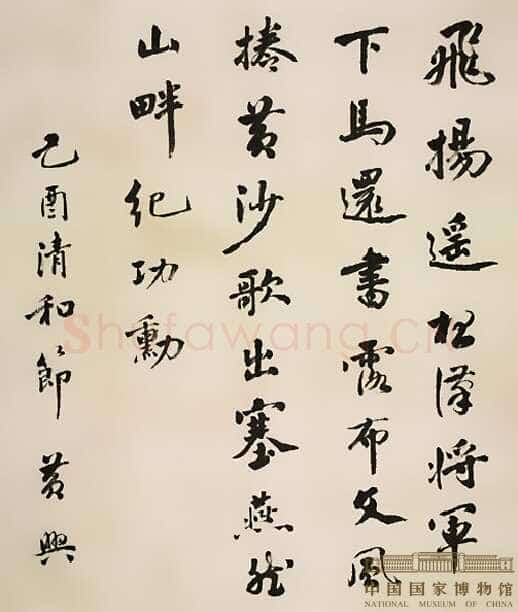 飛揚遥漢將軍
下馬還書露布文風
捲黄沙歌出塞燕然
山畔紀功勳
己酉清和節 黄興
Shufawang.cn
中国国家博物馆
NATIONAL MUSEUM OF CHINA